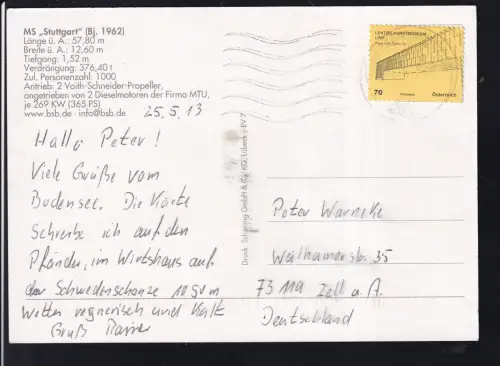 MS „Stuttgart" (Bj. 1962)
Länge ü. A.: 57,80 m
Breite ü. A.: 12,60 m
Tiefgang: 1,52 m
Verdrängung: 376,40 t
Zul. Personenzahl: 1000
Antrieb: 2 Voith-Schneider-Propeller,
angetrieben von 2 Dieselmotoren der Firma MTU,
je 269 KW (365 PS)
www.bsb.de · info@bsb.de
25.5.13
Hallo Peter!
Viele Grüße vom
Bodensee. Die Karte
Schreibe ich auf den
Pfänder, im Wirtshaus auf
der Schwedenschanze 1050m
Wetter regnerisch und kalt
Gruß Rainer
Druck Schöning GmbH & Co. KG, Lübeck · EV 7
LENTOS KUNSTMUSEUM
LINZ
70
Österreich
Peter Warneke
35
73119 Zell a. A.
Deutschland